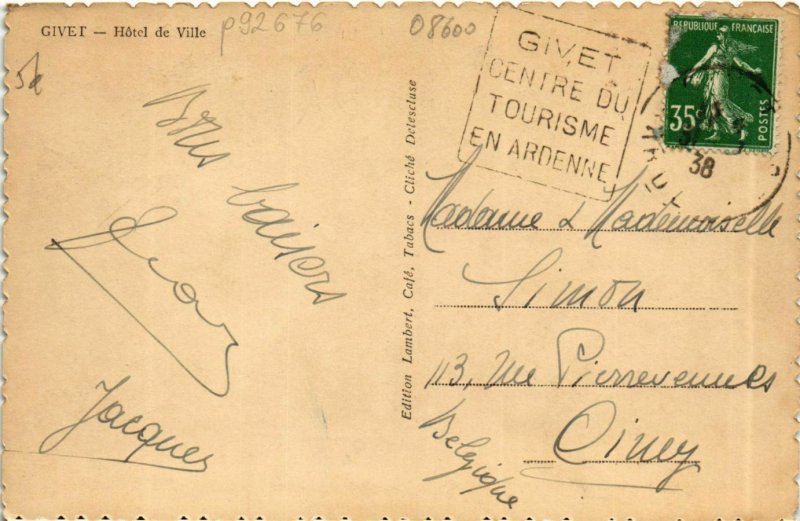 GIVET — Hôtel de Ville
p92676
08600
5e
GIVET
CENTRE DU
TOURISME
EN ARDENNE
RÉPUBLIQUE FRANÇAISE
35c
POSTES
38
Bons baisers
Jacques
Edition Lambert, Café, Tabacs - Cliché Delescluse
Madame & Mademoiselle
Simon
113, rue Pierrevennes
Ciney
Belgique